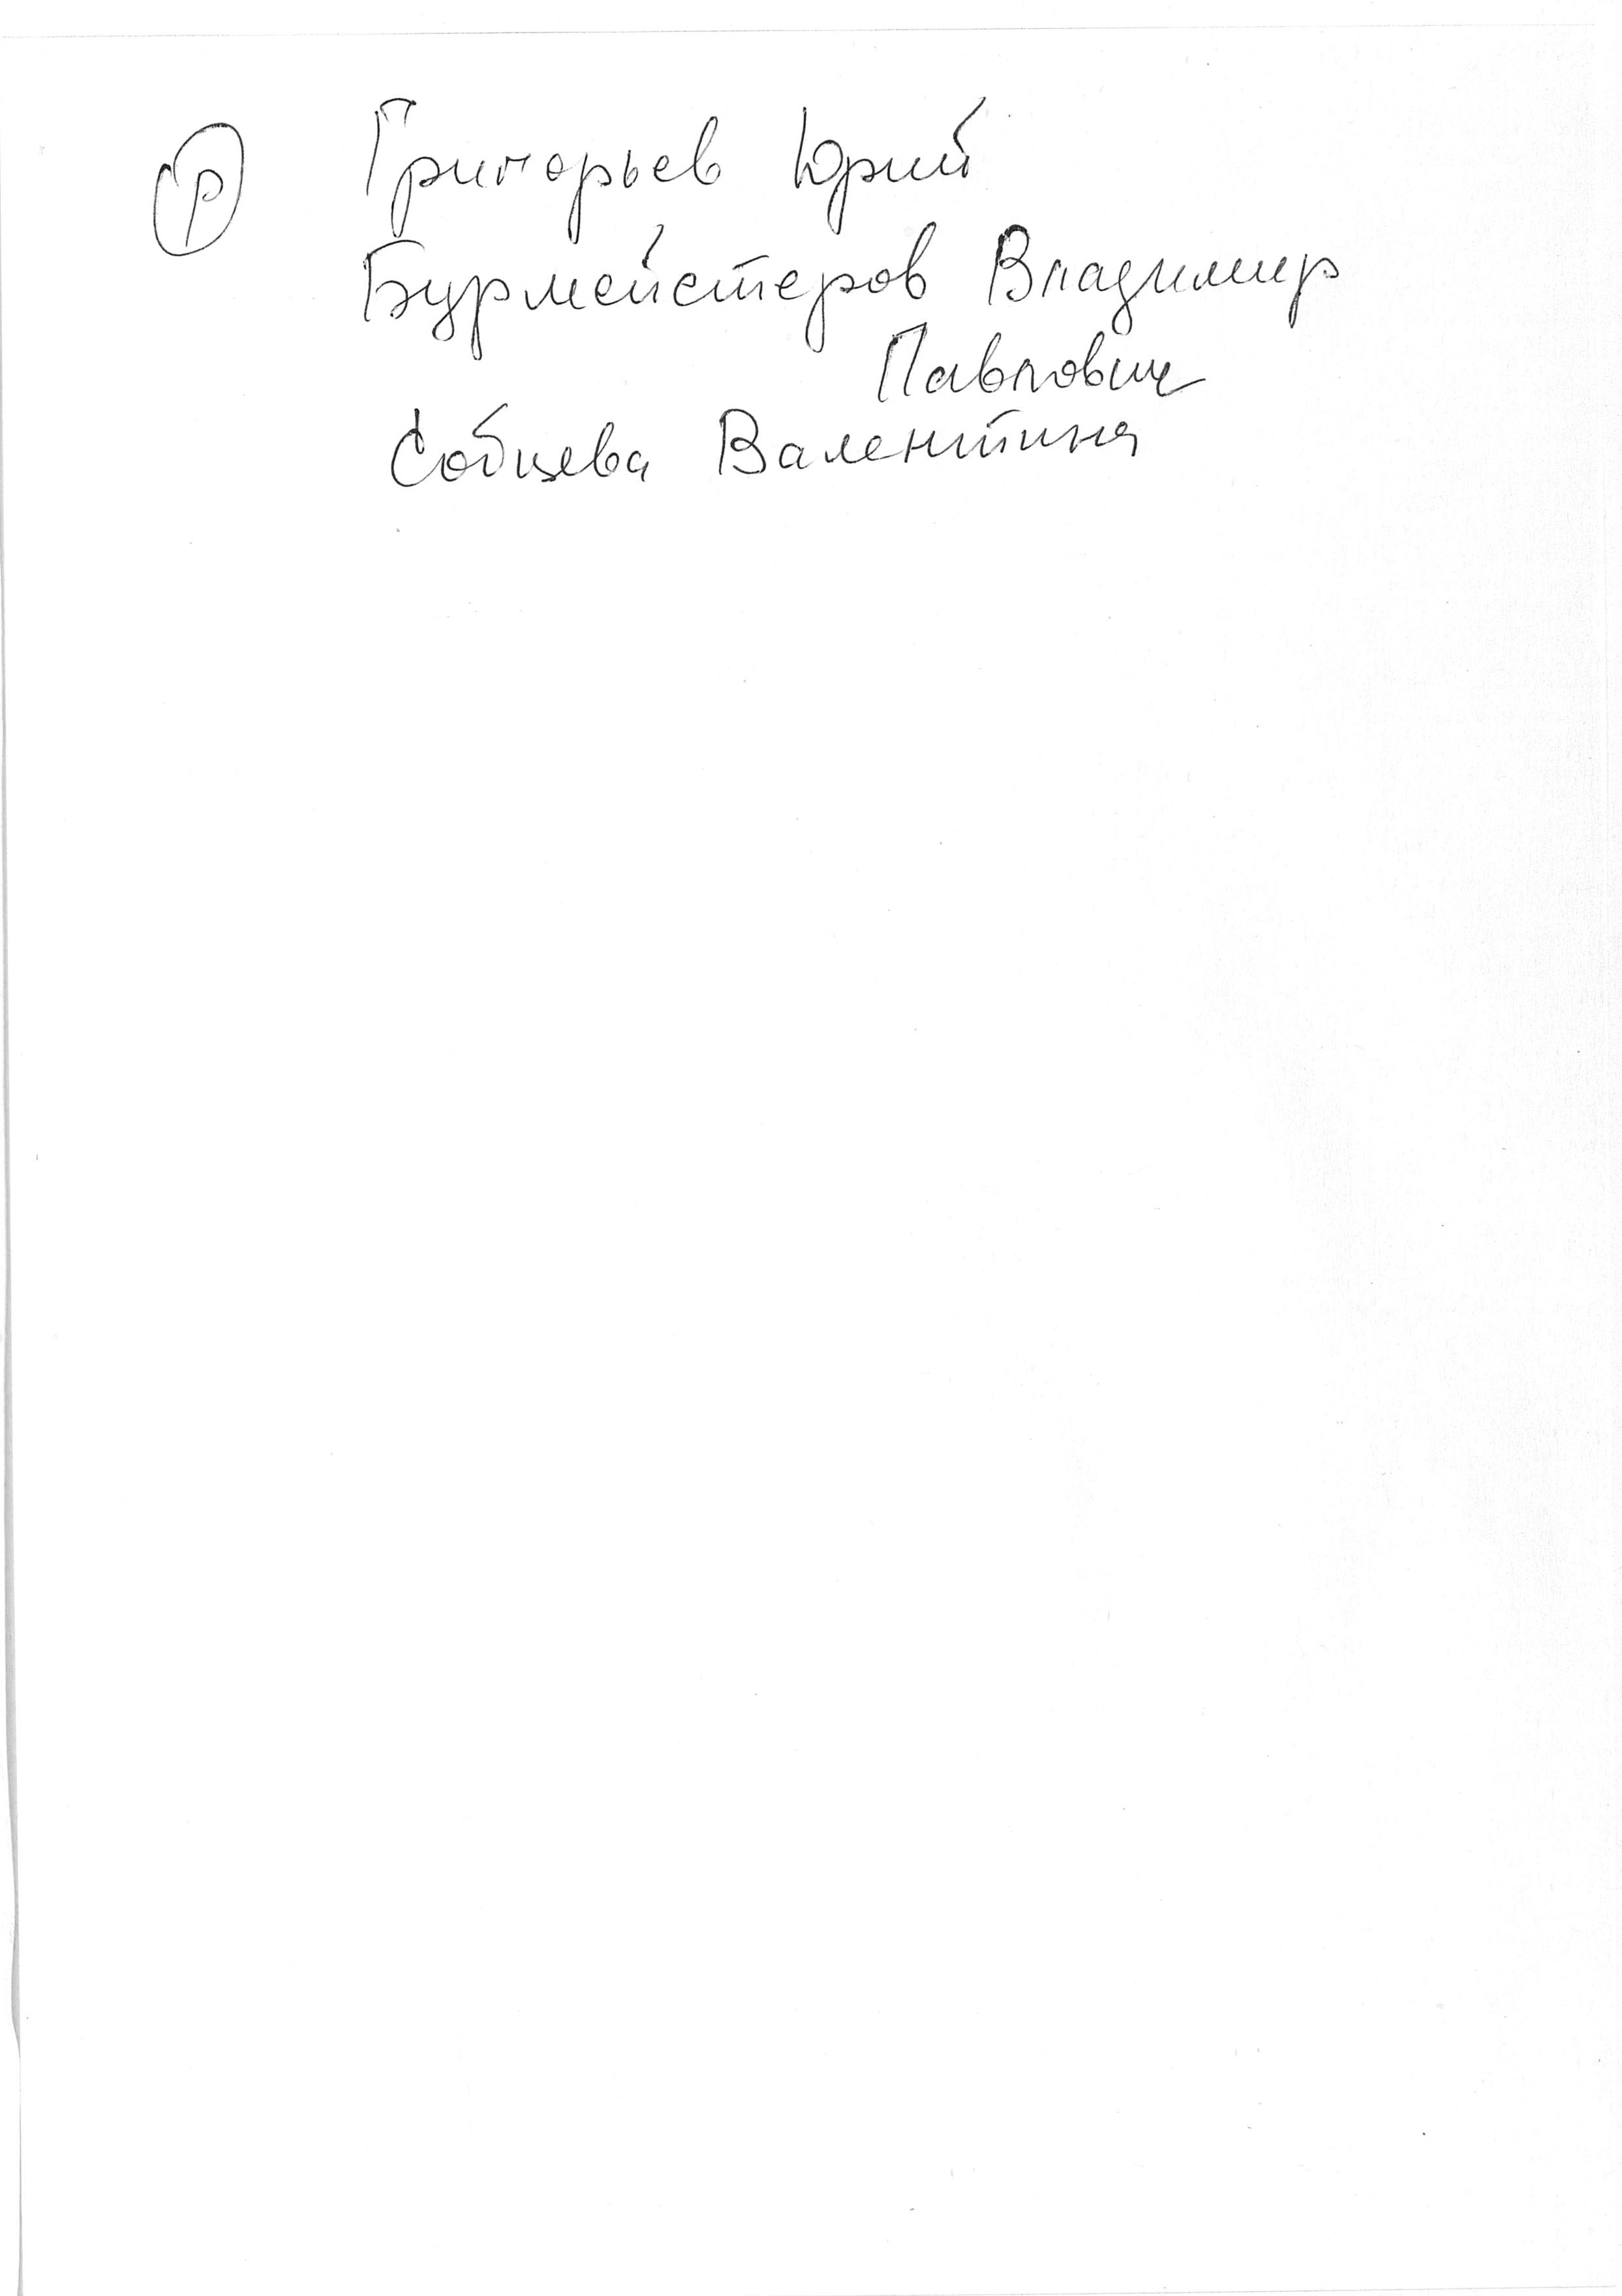 Р Григорьев Юрий
Бурмейстеров Владимир
Павлович
Собцева Валентина